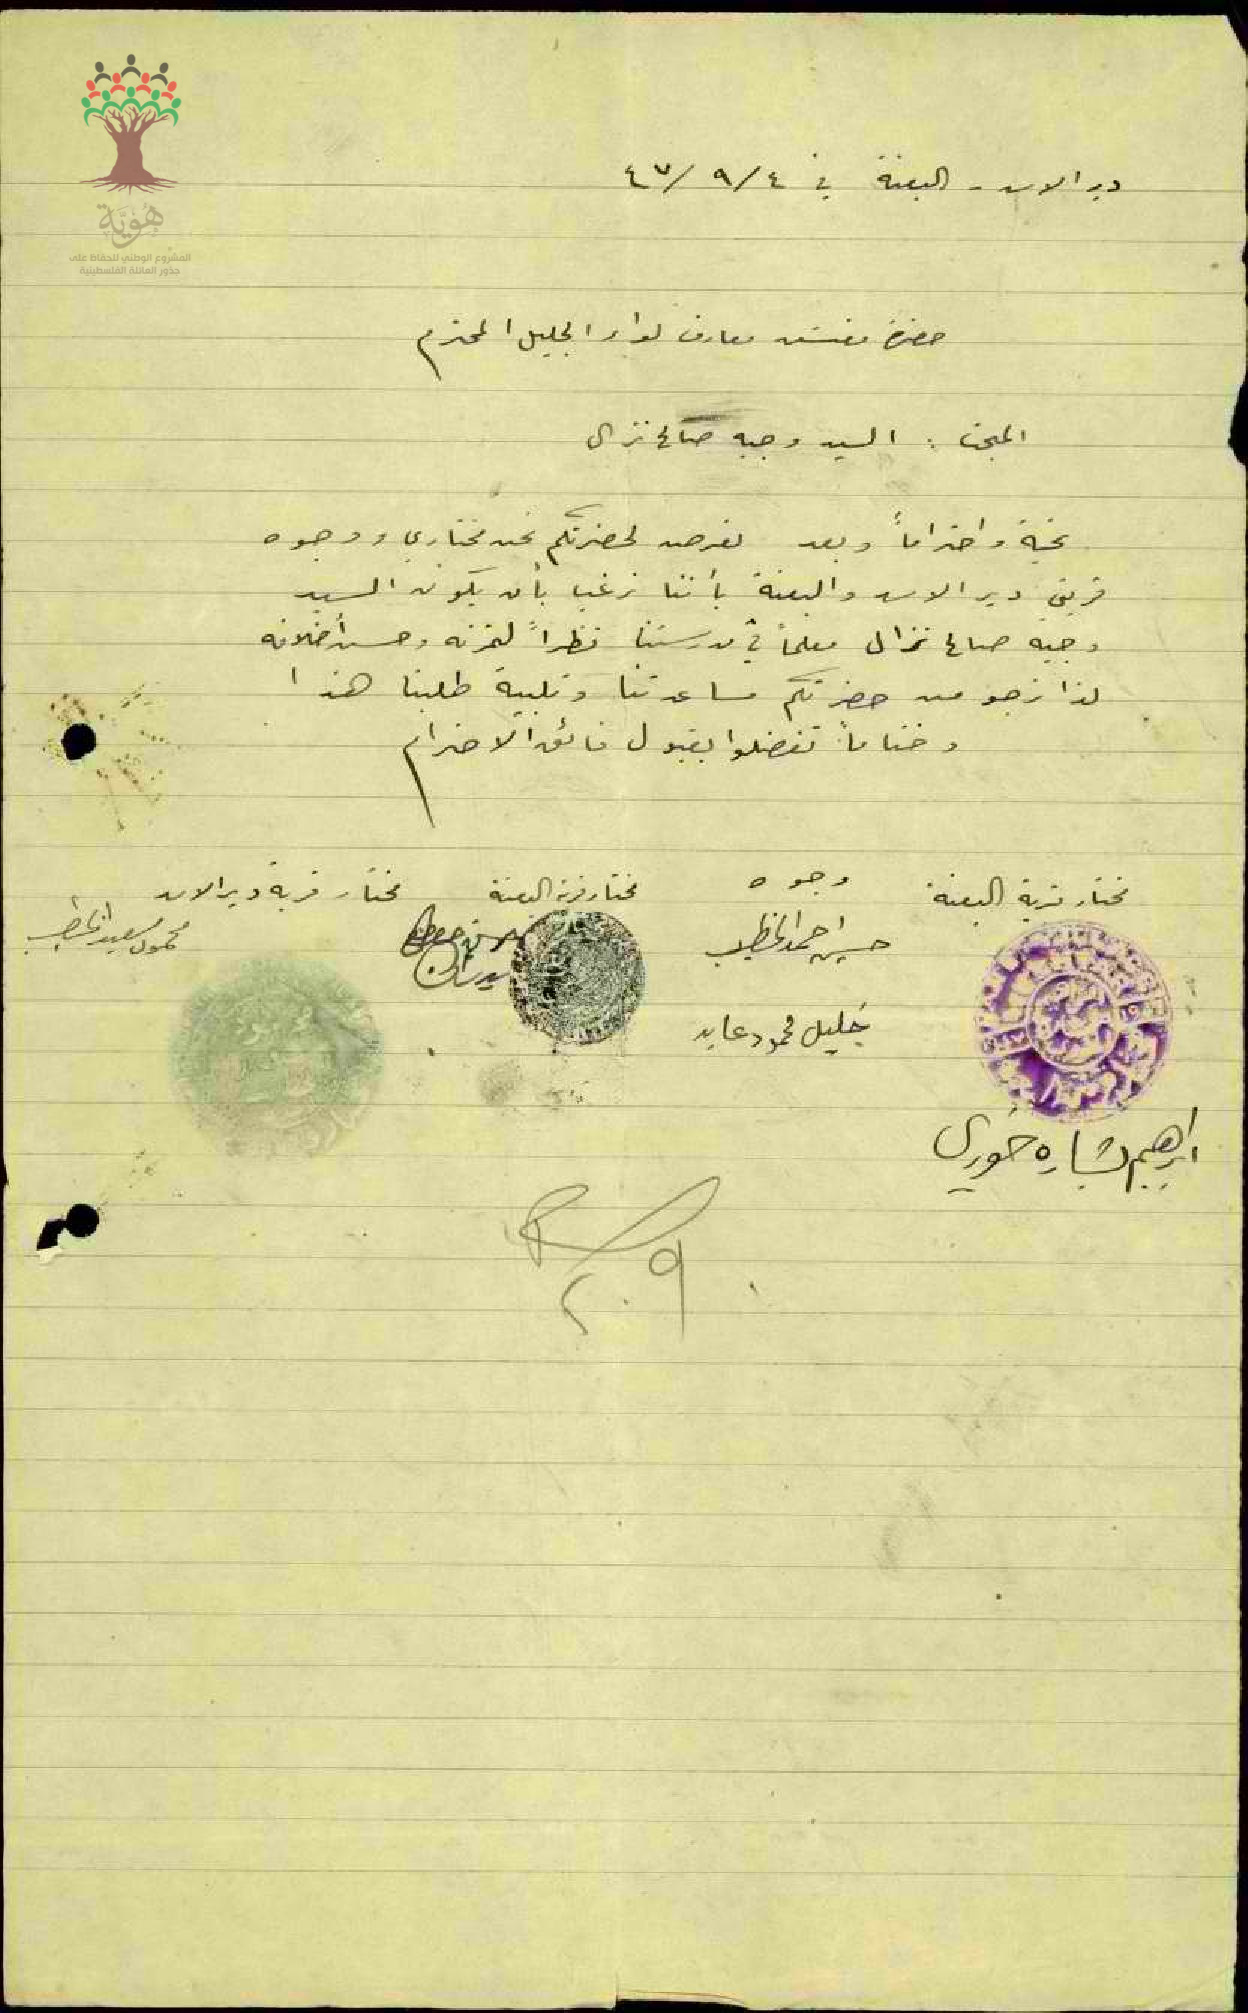 هُوِيَّة
المشروع الوطني للحفاظ على
جذور العائلة الفلسطينية
دير الاسد - البعنة في ٤/٩/٤٧
حضرة مفتش معارف لواء الجليل المحترم
المبحث : السيد وجيه صالح نزال
تحية واحتراماً وبعد نعرض لحضرتكم نحن مختاري ووجوه
قريتي دير الاسد والبعنة بأننا نرغب بأن يكون السيد
وجيه صالح نزال معلماً في مدرستنا نظراً لتمرنه وحسن أخلاقه
لذا نرجو من حضرتكم مساعدتنا وتلبية طلبنا هذا
وختاماً تفضلوا بقبول فائق الاحترام
مختار قرية البعنة وجوه مختار قرية البعنة مختار قرية دير الاسد
حسين احمد الخطيب محمود سعيد الخطيب
خليل محمود عابد
ابراهيم بشاره خوري